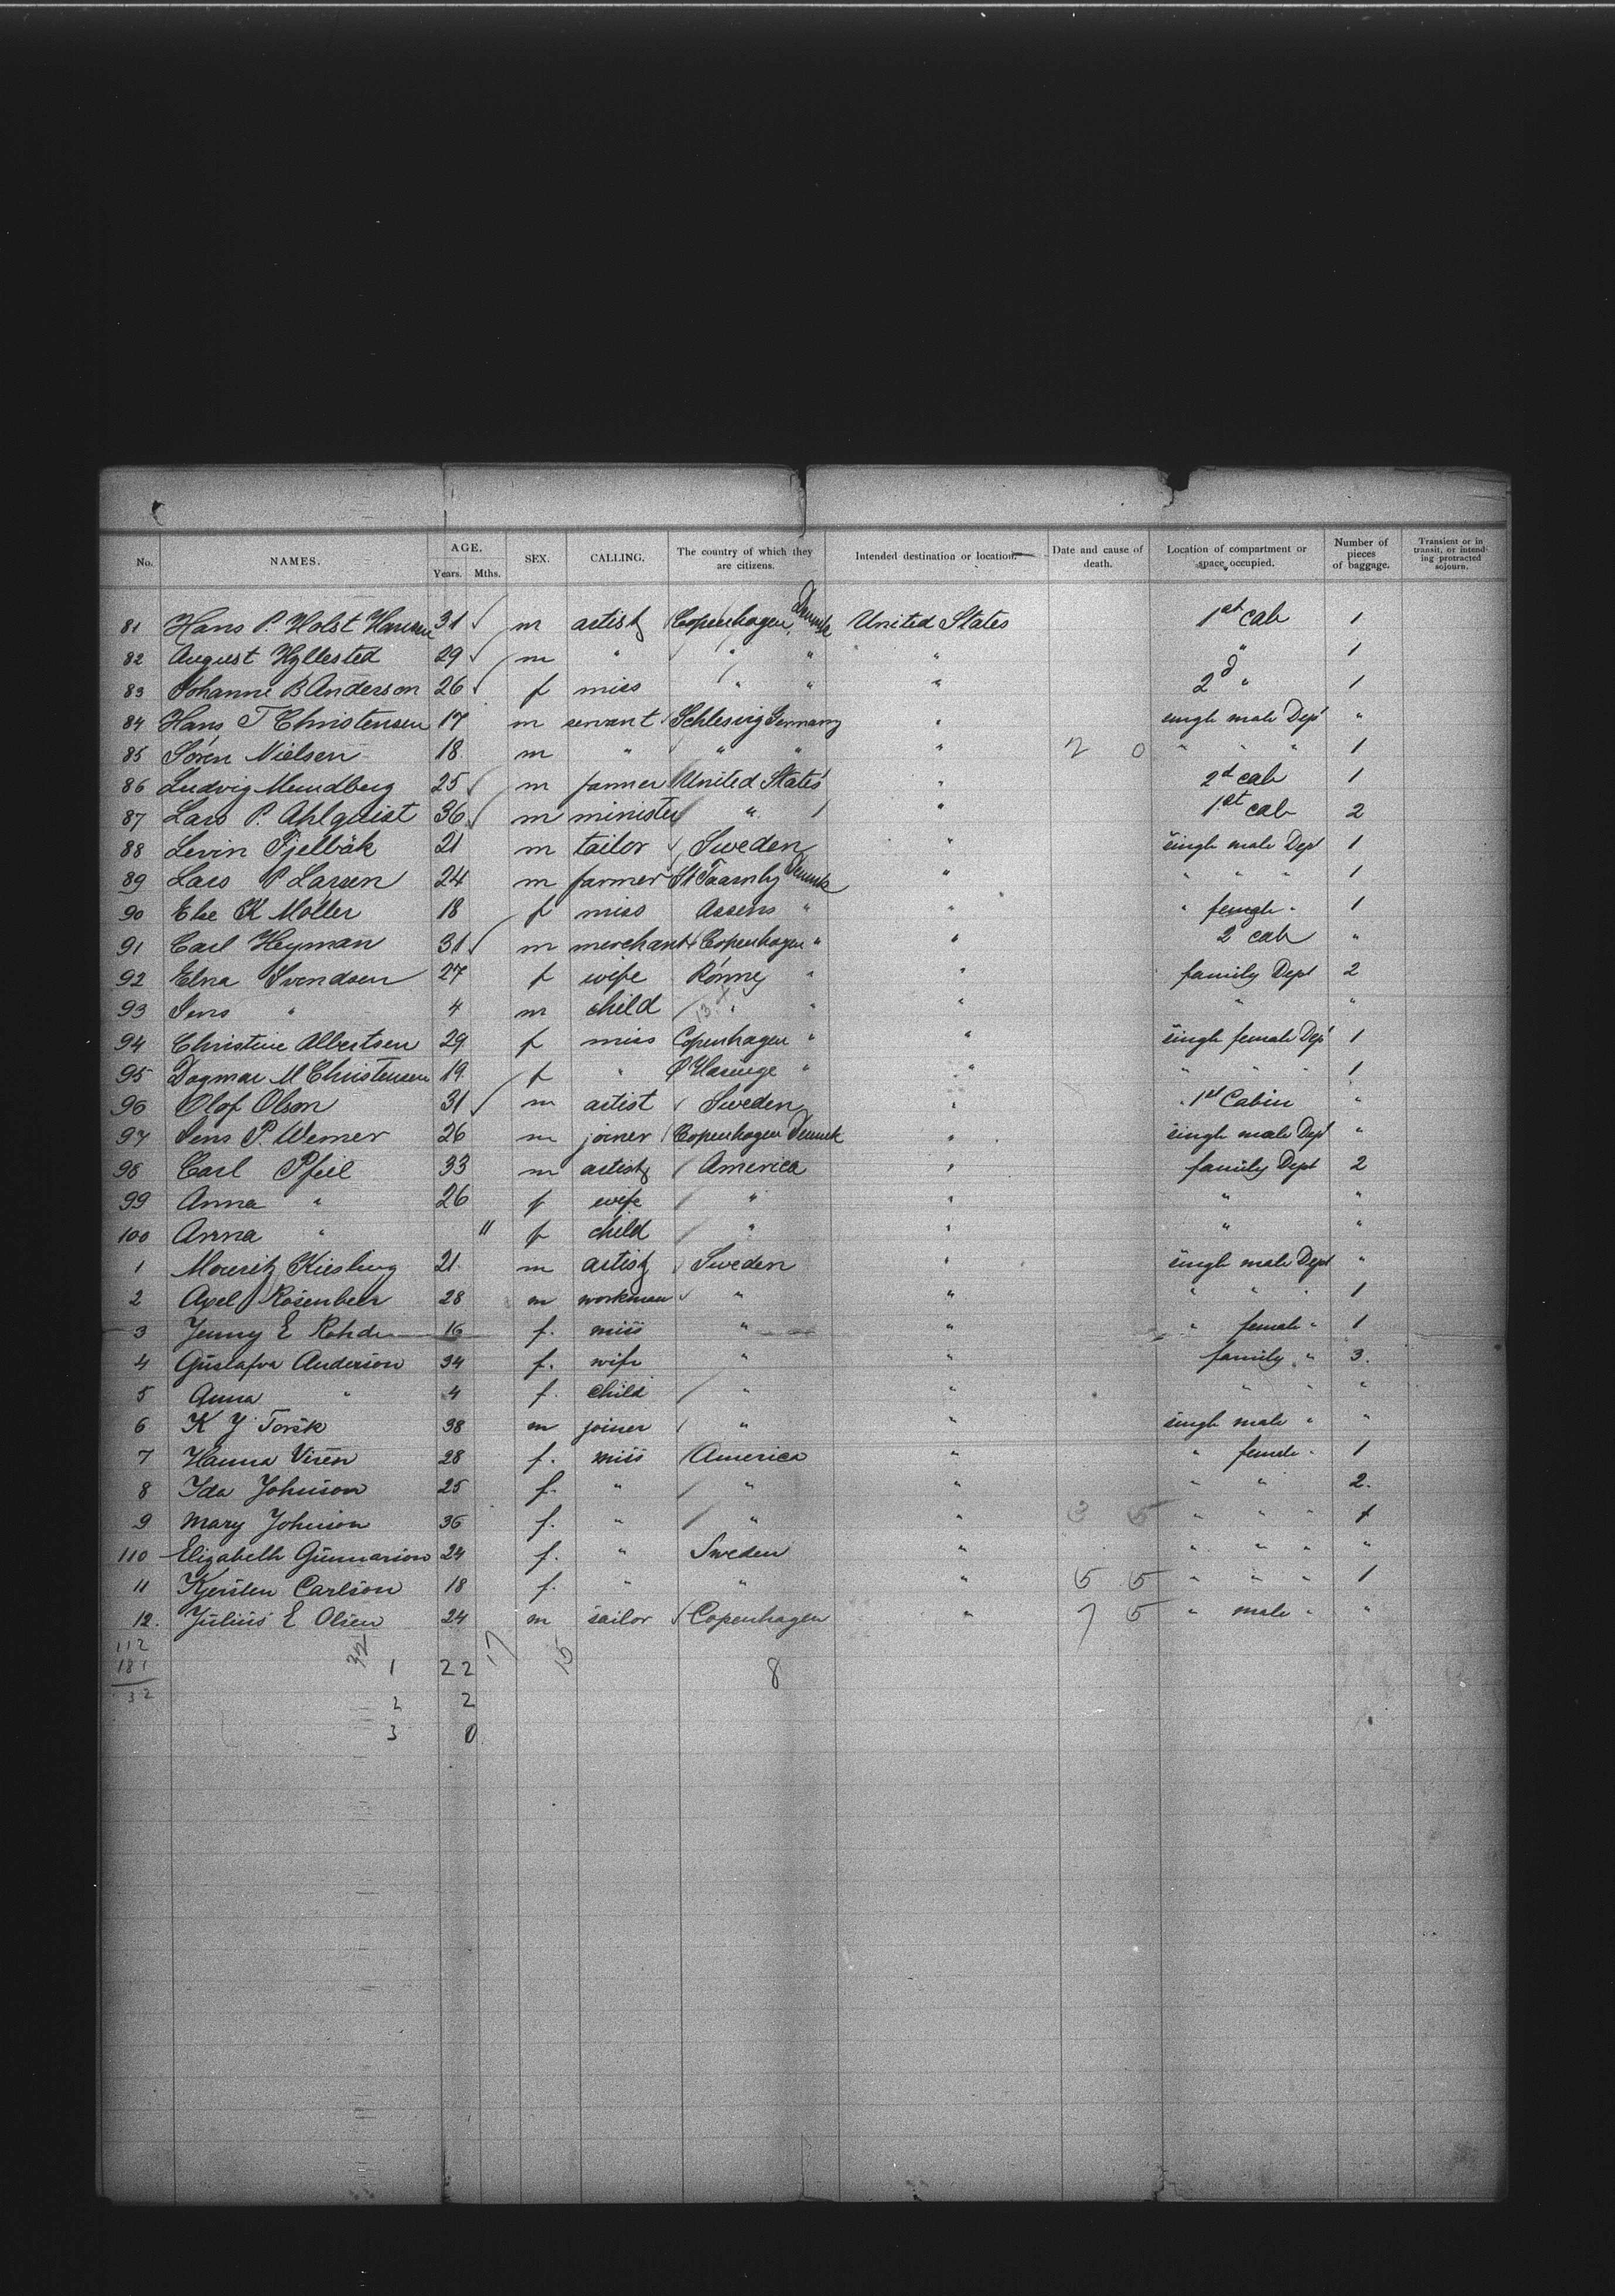 No. NAMES. AGE. Years. Mths. SEX. CALLING. The country of which they are citizens. Intended destination or location. Date and cause of death. Location of compartment or space occupied. Number of pieces of baggage. Transient or in transit, or intending protracted sojourn.
81 Hans P. Holst Hansen 31 m artist Copenhagen, Denmk United States 1st cab 1
82 August Hyllested 29 m " " " " " 1
83 Johanne B Anderson 26 f miss " " " 2d " 1
84 Hans T Christensen 17 m servant Schlesvig Germany " single male Dept "
85 Sören Nielsen 18 m " " " " 2 0 " " " 1
86 Ludvig Mundberg 25 m farmer United States " 2d cab 1
87 Lars P. Ahlquist 36 m minister " " 1st cab 2
88 Levin Fjelbäk 21 m tailor Sweden " single male Dept 1
89 Lars P Larsen 24 m farmer St Taarnby Denmk " " " " 1
90 Else K Möller 18 f miss Assens " " " female " 1
91 Carl Heyman 31 m merchant Copenhagen " " 2 cab "
92 Elna Svendsen 27 f wife Rönne " " family Dept 2
93 Jens " 4 m child " " " " "
94 Christine Albertsen 29 f miss Copenhagen " " single female Dept 1
95 Dagmar M Christensen 19 f " " " " " " 1
96 Olof Olson 31 m artist Sweden " 1st Cabin "
97 Jens P. Werner 26 m joiner Copenhagen Denmk " single male Dept "
98 Carl Pfeil 33 m artist America " family Dept 2
99 Anna " 26 f wife " " " "
100 Anna " 11 f child " " " "
1 Mouritz Kiesling 21 m artist Sweden " single male Dept "
2 Axel Rosenbeer 28 m workman " " " " " 1
3 Jenny E Rohde 16 f. miss " " " female " 1
4 Gustafva Anderson 34 f. wife " " family " 3.
5 Anna " 4 f. child " " " " "
6 K J Torsk 38 m joiner " " single male " "
7 Hanna Viren 28 f. miss America " " female " 1
8 Ida Johnson 25 f. " " " " " 2.
9 Mary Johnson 36 f. " " " 3 5 " " " 1
110 Elizabeth Gunnarson 24 f. " Sweden " " " " "
11 Kjersten Carlson 18 f. " " " 5 5 " " " 1
12. Julius E Olsen 24 m sailor Copenhagen " 7 5 " male " "
112 32 17 15
181 1 22 8
32 2 2
3 0